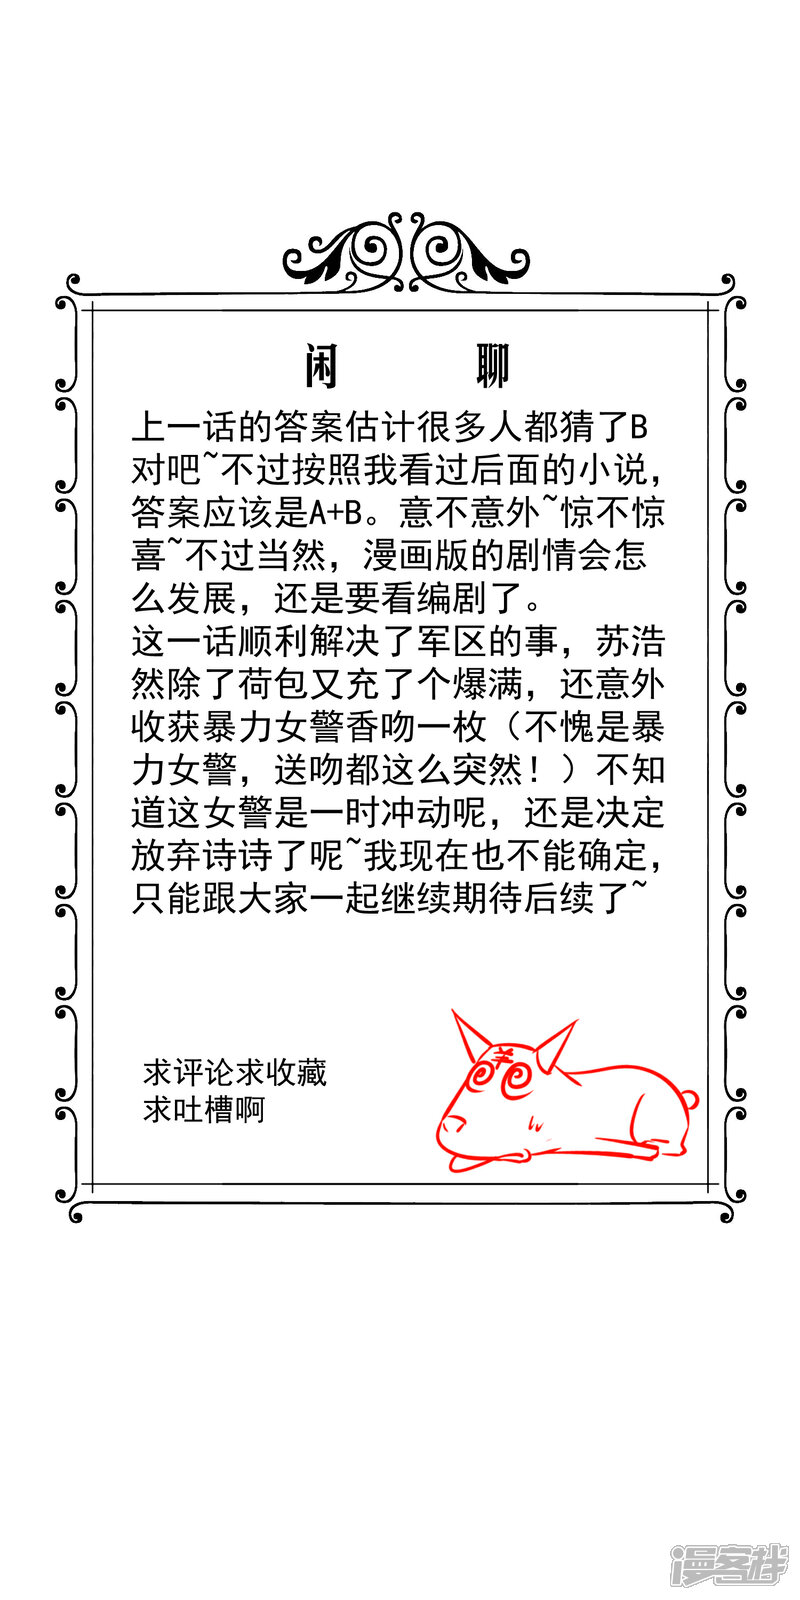 闲 聊
上一话的答案估计很多人都猜了B
对吧~不过按照我看过后面的小说，
答案应该是A+B。意不意外~惊不惊
喜~不过当然，漫画版的剧情会怎
么发展，还是要看编剧了。
这一话顺利解决了军区的事，苏浩
然除了荷包又充了个爆满，还意外
收获暴力女警香吻一枚（不愧是暴
力女警，送吻都这么突然！）不知
道这女警是一时冲动呢，还是决定
放弃诗诗了呢~我现在也不能确定，
只能跟大家一起继续期待后续了~
求评论求收藏
求吐槽啊
漫客栈